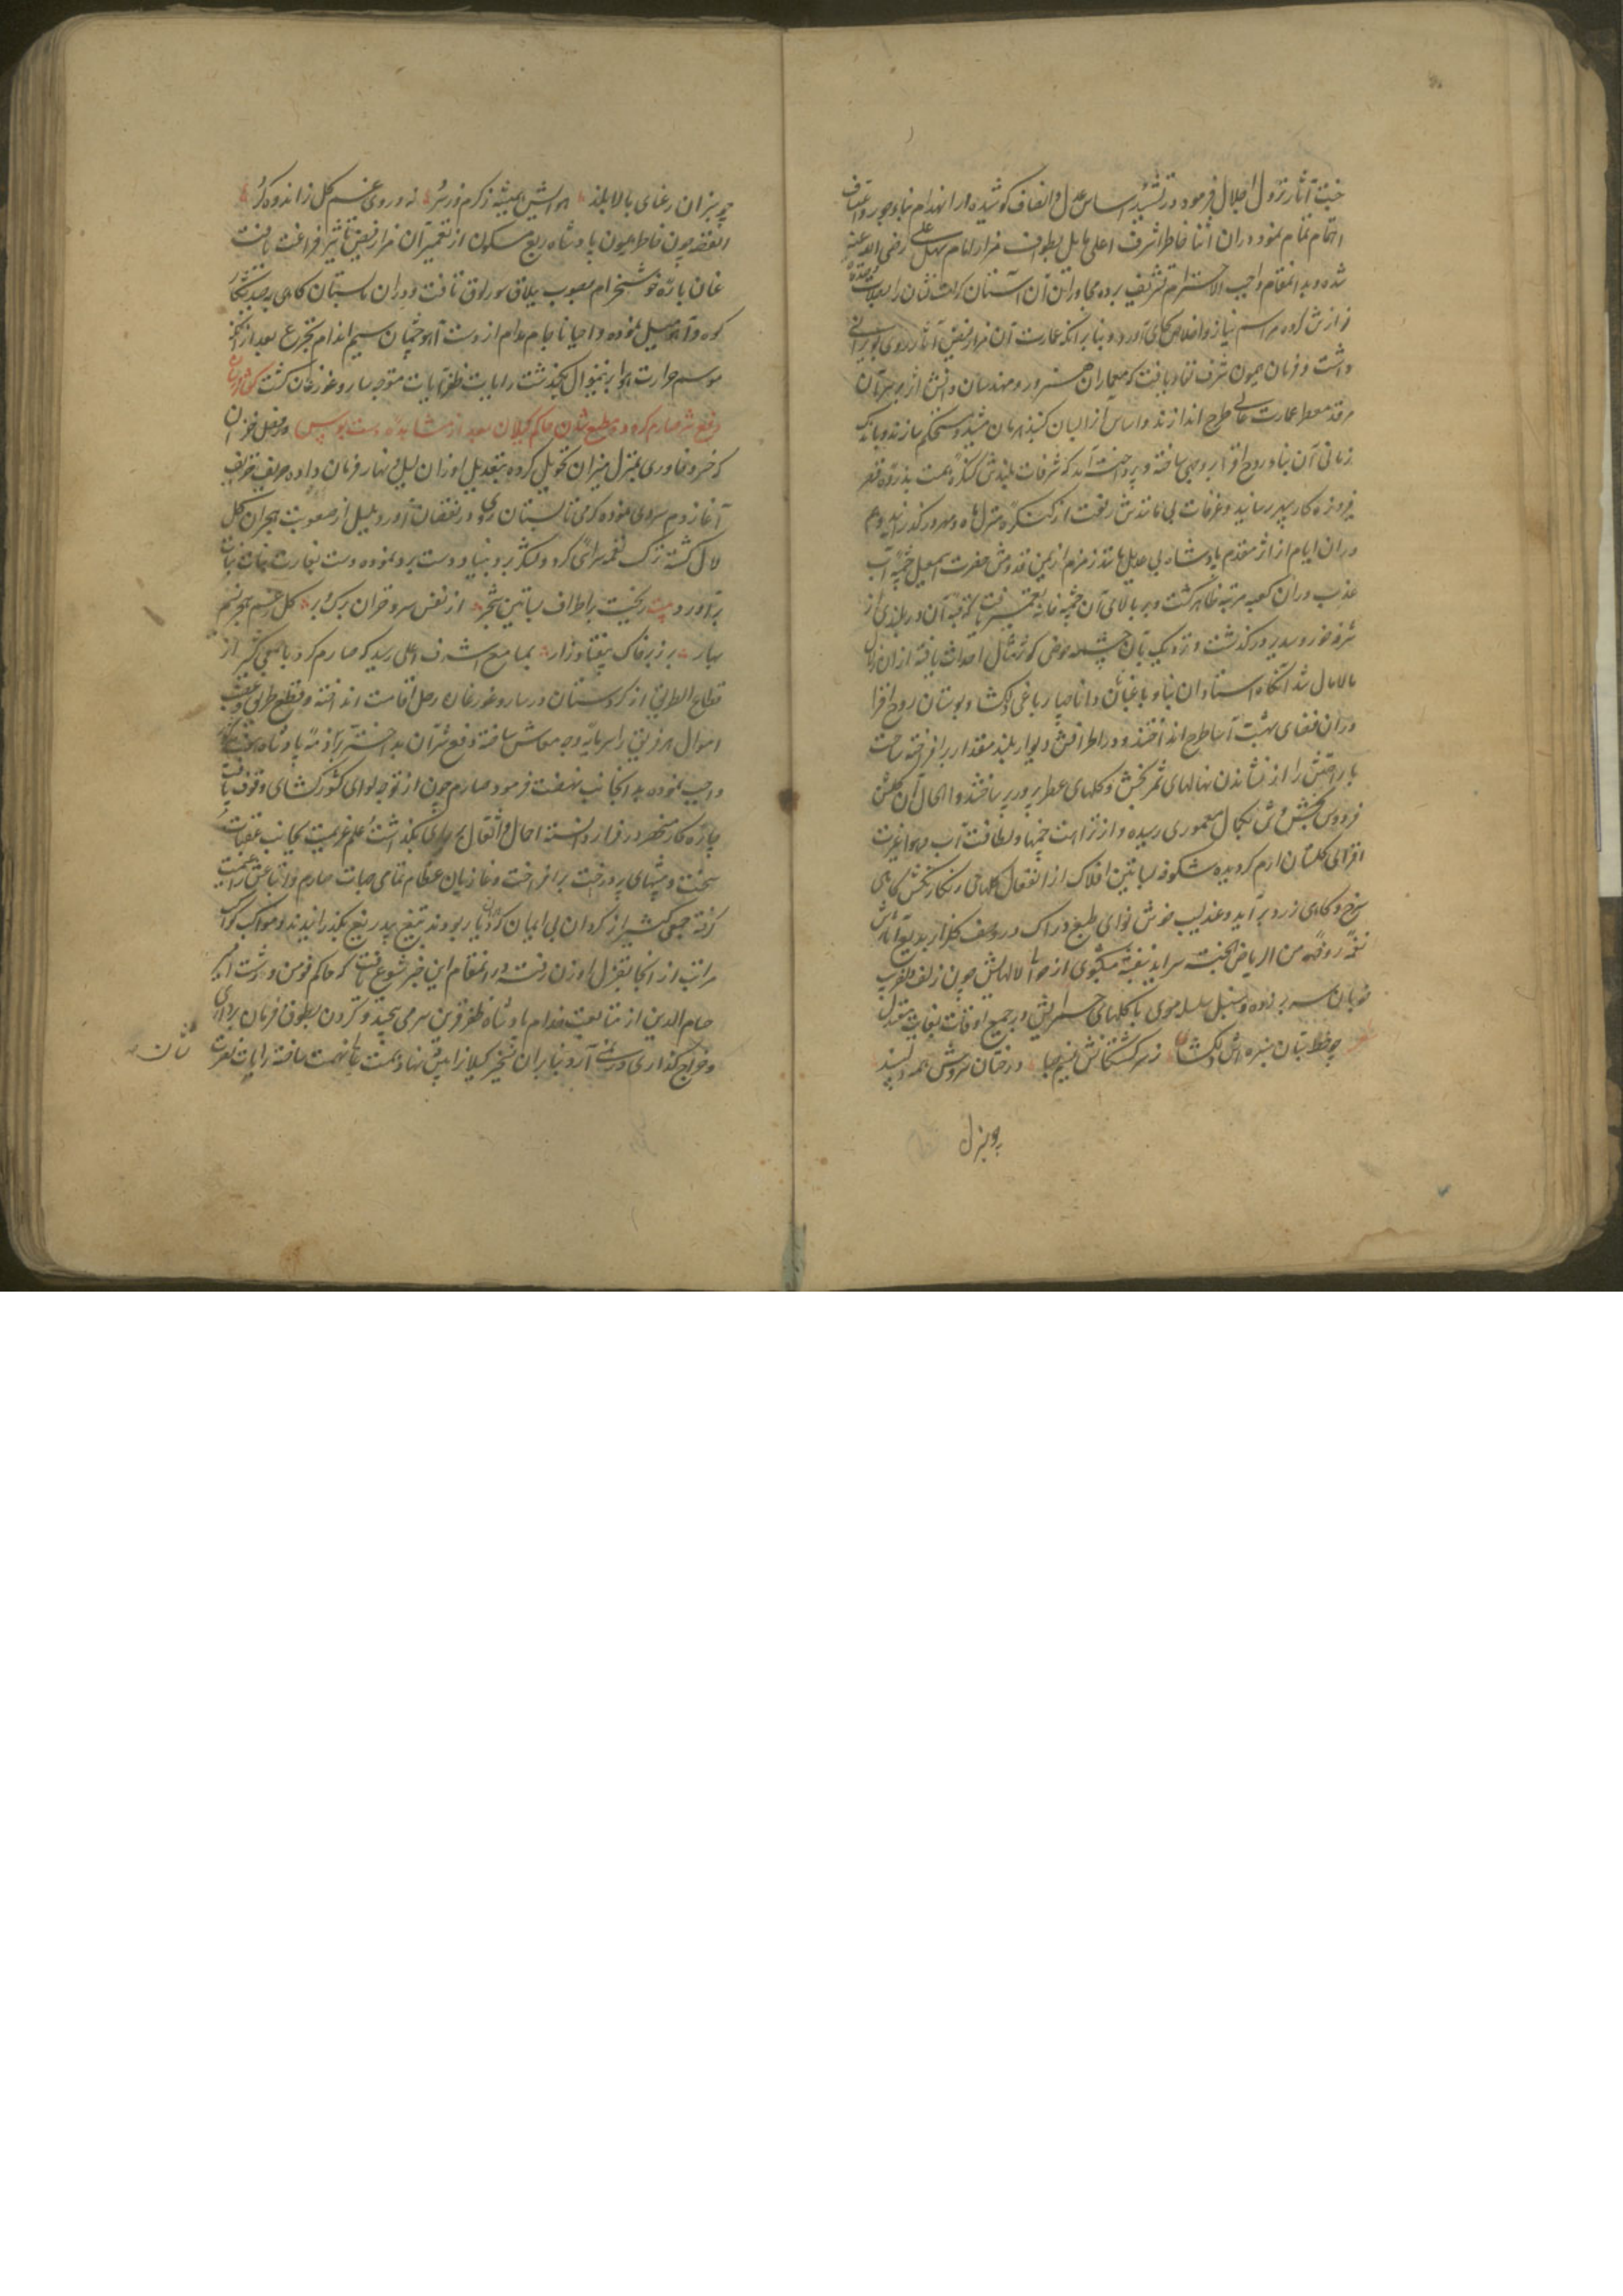 خجت آثار نزول اجلال فرمود در تشیید اساس عدل و انصاف کوشیده در انهدام بناء جور و اعتساف
اهتمام تمام نمود در آن اثنا خاطر اشرف اعلی مایل بطواف مزار امام سهل علی رضی الله عنه
شده و بدانمقام واجب الاحترام تشریف برده مجاوران آن آستان کرامت نشان را بصلات و صدقات
نوازش کرده مراسم نیاز و اخلاص بجای آورد و بنابر آنکه عمارت آن مزار فیض آثار روی بویرانی
داشت فرمان همیون شرف نفاد یافت که معماران هنرور و مهندسان دانش اثر بر سر آن
مرقد معطر عمارت عالی طرح اندازند و اساس از ایسان کنبد هرمان مشید و مستحکم سازند و باندک
زمانی آن بناء روح افزا بروجهی ساخته و پرداخته آمد که شرفات بلندش کنگره همت بذروه قصر
فیروزه کار سپهر رسانید و غرفات بی مانندش رفعت از کنگره منزل ماه و مهر در گذرانید و هم
در آن ایام از اثر مقدم پادشاه بی عدیل مانند زمزم از یمن قدوم حضرت اسمعیل چشمه آب
عذب در آن کعبه مرتبه ظاهر گشت و بر بالای آن چشمه خانه تعمیر یافت که قبه آن در بلندی از
شرفه خورشید در گذشت و نزدیک بآن چشمه حوض کوثر مثال احداث یافته از آن زلال
مالامال شد آنگاه استادان بنا و باغبانان دانا چهار باغی دلگشا و بوستان روح افزا
در آن فضای بهشت آسا طرح انداختند و در اطرافش دیوار بلند مقدار برافراخته ساحت
با راحتش را از نشاندن نهالهای ثمر بخش و گلهای عطرپرور پرساختند و الحال آن گلشن
فردوس وش بکمال معموری رسیده و از نزاهت چمنها و لطافت آب و هوا غیرت
افزای گلستان ارم گردیده شکوفه بساتین افلاک از انفعال گلهای رنگارنگش گاهی
سرخ و گاهی زرد بر آید و عندلیب خوش نوای طبع دراک در وصف گلزار بدیع آثارش
نغمه روضة من الریاض الجنه سراید بنفشه مشکبوی از حوالی لالهایش چون زلف دلفریب
خوبان سر بر زده و سنبل سلسله موی با گلهای حمرایش در جمیع اوقات بغایت معتدل
چو خط بتان سبزه اش دلگشا زهر گشتگانش نسیم صبا درختان سروش همه دلپسند
چو بنزل
چو سرآن رعنای بالا بلند هوایش همیشه ز گرم و ز سرد نه در وی غم گل نه اندوه گرد
القصه چون خاطر همیون پادشاه ربع مسکون از تعمیر آن مزار فیض تاثیر فراغت یافت
عنان باره خوشخرام بصوب ییلاق سورلوق تافت و در آن تابستان گاهی بصید شکار
کوه و آهو میل نموده و احیانا جام مدام از دست آهو چشمان سیم اندام تجرع بعد از آنکه
موسم حرارت هوا برینمنوال بگذشت رایات ظفر آیات متوجه سارو غورغان گشت
دفع شر صارم کرد و مطیع شدن حاکم گیلان بعد از مشاهده دست بوس در فصل خزان
که خسرو خاوری بمنزل میزان تحویل کرده بتعدیل اوزان لیل و نهار فرمان داده حریف خریف
آغاز دم سردی نموده گرمی تابستان روی در نقصان آورد بلبل از صعوبت هجران گل
لال گشته ترک نغمه سرائی کرد و لشکر برد بنیاد دست برد نموده دست بغارت نبات
برآورد بیت ریخت باطراف بساتین شجر از نفس سرد خزان برگ و بر
بهار بر زبر خاک بیفتاد زار بمسامع اشرف اعلی رسید که صارم کرد با جمعی کثیر از
قطاع الطریق از کردستان در سارو غورغان رحل اقامت انداخته و بقطع طریق و نهب
اموال هر فریق را سرمایه وجه معاش ساخته دفع شر آن بد اختر بر ذمه پادشاه
واجب نموده بدانجانب نهضت فرمود صارم چون از توجه لوای کشورگشای وقوف یافت
چاره کار منحصر در فرار دانسته احمال و اثقال بر جای بگذاشت علم عزیمت بجانب عقبات
سخت و بیشهای پر درخت برافراخت و غازیان عظام تمامی جهات صارم و اتباعش را غنیمت
گرفته جمعی کثیر از کردان بی ایمان که در آن دیار بودند بتیغ بیدریغ بگذرانیدند و مواکب کواکب
مراتب از آنجا بقزل اوزن رفته در آنمقام این خبر شیوع یافت که حاکم فومن و رشت امیره
حسام الدین از متابعت خدام پادشاه ظفر قرین سر می پیچد و گردن بطوق فرمان برداری
و خراج گذاری در نمی آرد بنابر آن تسخیر گیلان را پیش نهاد همت عالی نهمت ساخته رایات نصرت
نشان